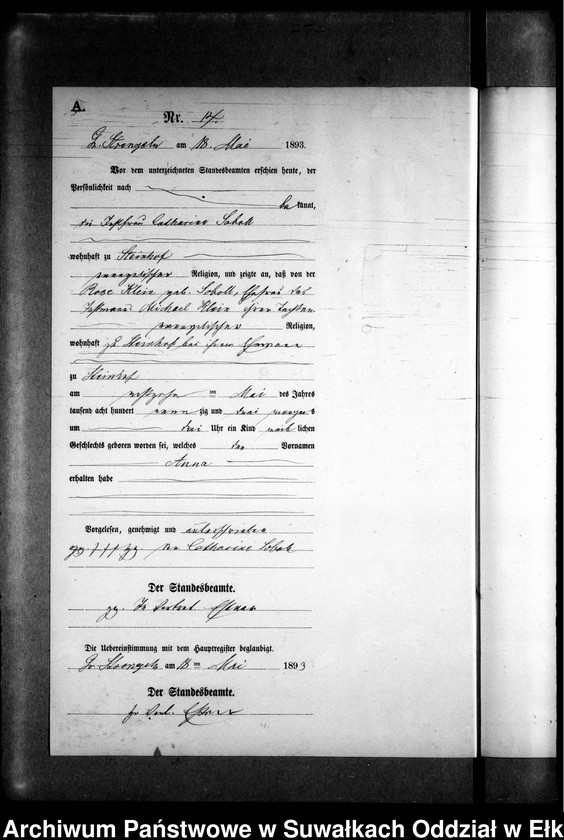 A.
Nr. 14.
Gr. Strengeln am 18. Mai 1893.
Vor dem unterzeichneten Standesbeamten erschien heute, der
Persönlichkeit nach
bekannt,
die Catharine Sobott
wohnhaft zu Steinhof
evangelischer Religion, und zeigte an, daß von der
Rose Klein geb. Sobott, Ehefrau des
Michael Klein ihrer Tochter
evangelischer Religion,
wohnhaft zu Steinhof bei ihrem Ehemann
zu Steinhof
am ten Mai des Jahres
tausend acht hundert neunzig und drei morgens
um drei Uhr ein Kind weiblichen
Geschlechts geboren worden sei, welches den Vornamen
Anna
erhalten habe
Vorgelesen, genehmigt und unterschrieben
gz. +++ der Catharine Sobott
Der Standesbeamte.
gz. In Vertret.
Die Uebereinstimmung mit dem Hauptregister beglaubigt.
Gr. Strengeln am 18 ten Mai 1893
Der Standesbeamte.
In Vert.
Archiwum Państwowe w Suwałkach Oddział w Ełk